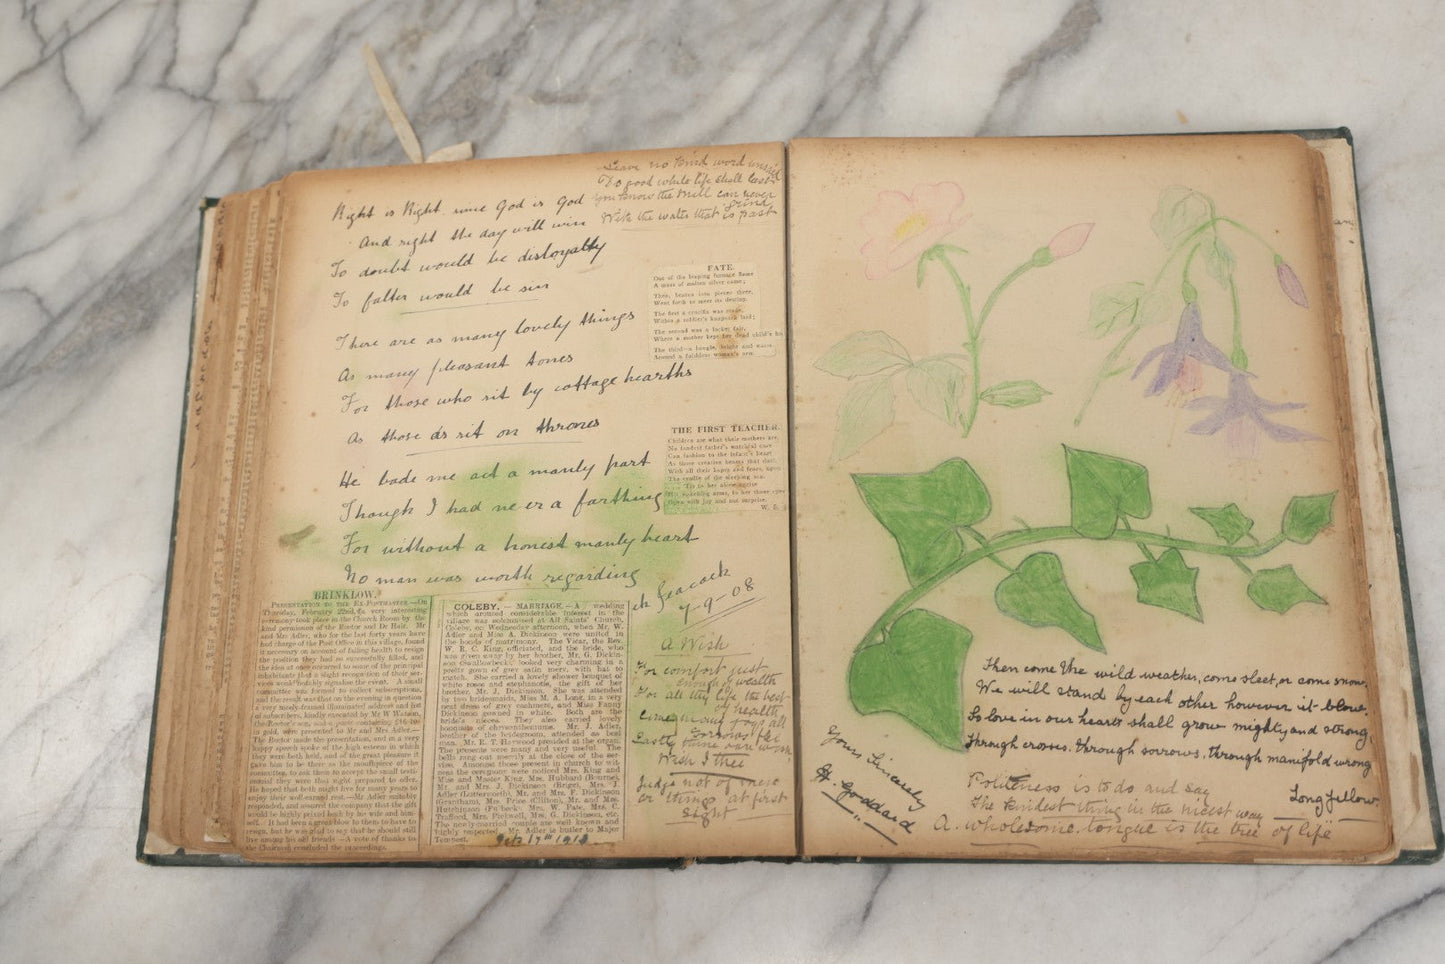 Leave no kind word unsaid
Do good while life shall last
You know the Mill can never
grind
With the water that is past
Right is Right, since God is God
And right the day will win
To doubt would be disloyalty
To falter would be sin
There are as many lovely things
As many pleasant tones
For those who sit by cottage hearths
As those who sit on thrones
He bade me act a manly part
Though I had ne'er a farthing
For without a honest manly heart
No man was worth regarding
Peacock
7-9-08
FATE.
Out of the leaping furnace flame
A mass of molten silver came;
Then, beaten into pieces three,
Went forth to meet its destiny.
The first a crucifix was made,
Within a soldier's knapsack laid;
The second was a locket fair,
Where a mother kept her dead child's
The third—a bangle, bright and warm,
Around a faithless woman's arm.
THE FIRST TEACHER.
Children are what their mothers are,
No fondest father's watchful care
Can fashion so the infant's heart
As those creative beams that dart,
With all their hopes and fears, upon
The cradle of the sleeping son.
BRINKLOW.
PRESENTATION TO THE EX-POSTMASTER.—On
Thursday, February 22nd, a very interesting
ceremony took place in the Church Room by the
kind permission of the Rector and Dr Hair. Mr
and Mrs Adler, who for the last forty years have
had charge of the Post Office in this village, found
it necessary on account of failing health to resign
the position they had so successfully filled, and
the idea at once occurred to some of the principal
inhabitants that a slight recognition of their ser-
vices would fitly signalise the event. A small
committee was formed to collect subscriptions,
and the result was that on the evening in question
a very nicely-framed illuminated address and list
of subscribers, kindly executed by Mr W Watson,
the Rector's son, and a purse containing £16
in gold, were presented to Mr and Mrs Adler.—
The Rector made the presentation, and in a very
happy speech spoke of the high esteem in which
they were both held, and of the great pleasure it
gave him to be there as the mouthpiece of the
committee, to ask them to accept the small testi-
monial they were that night prepared to offer.
He hoped that both might live for many years to
enjoy their well-earned rest.—Mr Adler suitably
responded, and assured the company that the gift
would be highly prized both by his wife and him-
self. It had been a great blow to them to have to
resign, but he was glad to say that he should still
live among his old friends.—A vote of thanks to
the Chairman concluded the proceedings.
COLEBY.—MARRIAGE.—A wedding
which aroused considerable interest in the
village was solemnised at All Saints' Church,
Coleby, on Wednesday afternoon, when Mr. W.
Adler and Miss A. Dickinson were united in
the bonds of matrimony. The Vicar, the Rev.
W. R. C. King, officiated, and the bride, who
was given away by her brother, Mr. G. Dickin-
son (Swallowbeck), looked very charming in a
pretty gown of grey satin merv, with hat to
match. She carried a lovely shower bouquet of
white roses and stephanotis, the gift of her
brother, Mr. J. Dickinson. She was attended
by two bridesmaids, Miss M. A. Lane, in a very
neat dress of grey cashmere, and Miss Fanny
Dickinson gowned in white. Both are the
bride's nieces. They also carried lovely
bouquets of chrysanthemums. Mr. J. Adler,
brother of the bridegroom, attended as best
man. Mr. E. T. Harwood presided at the organ.
The presents were many and very useful. The
bells rang out merrily at the close of the ser-
vice. Amongst those present in church to wit-
ness the ceremony were noticed Mrs. King and
Miss and Master King, Mrs. Hubbard (Bourne),
Mr. and Mrs. J. Dickinson (Brigg), Mrs. J.
Adler (Lutterworth), Mr. and Mrs. F. Dickinson
(Grantham), Mrs. Price (Clifton), Mr. and Mrs.
Hutchinson (Fulbeck), Mrs. W. Pate, Mrs. C.
Trafford, Mrs. Pickwell, Mrs. G. Dickinson, etc.
The newly-married couple are well known and
highly respected. Mr. Adler is butler to Major
Tempest.
17th 1910
A Wish
For comfort just
enough of wealth
For all thy life the best
of health
many joys all
sorrows flee
Lastly
Wish I thee
Judge not of men
or things at first
sight
Then come the wild weather, come sleet, or come snow,
We will stand by each other however it blow,
So love in our hearts shall grow mighty and strong,
Through crosses, through sorrows, through manifold wrong
Longfellow.
Yours Sincerely
H. Goddard
Politeness is to do and say
The kindest thing in the nicest way
A wholesome tongue is the tree of life